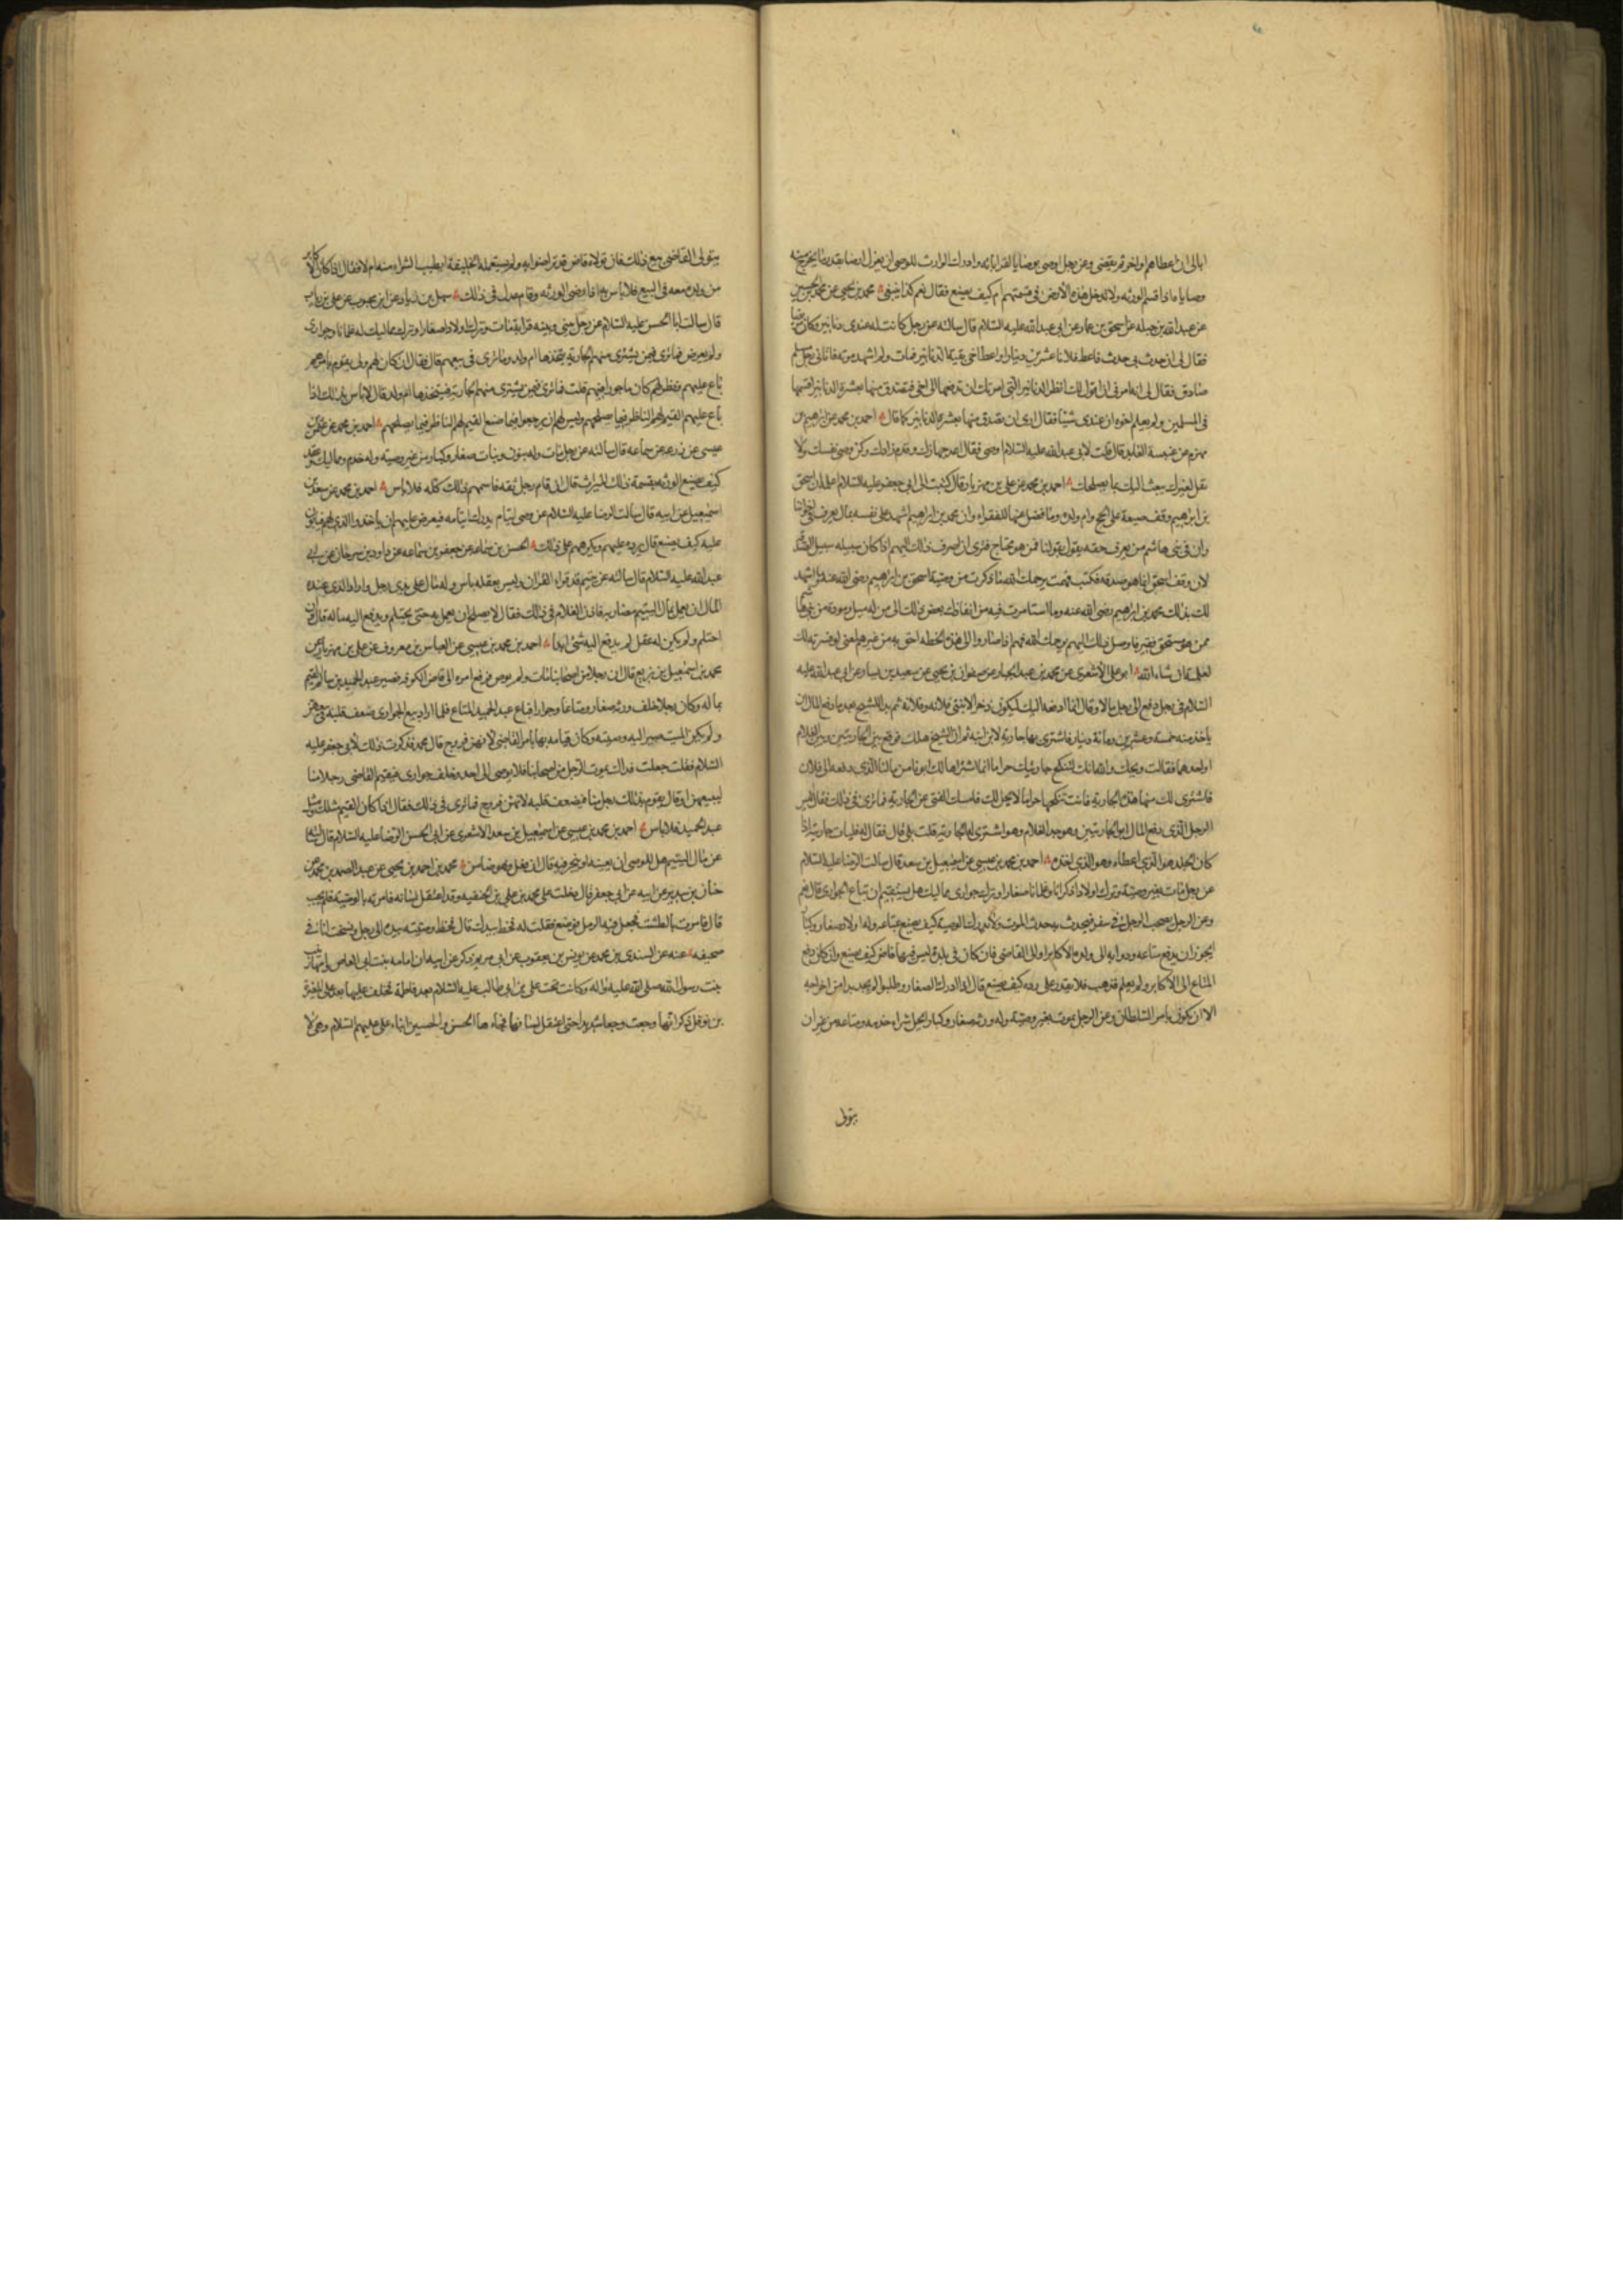 ابالى ان اعطاهم او اخر ثم يقضى وعن رجل اوصى بوصايا لقراباته وادرك الوارث للوصى ان يعزل ارضا بقدر ما يخرج منه
وصاياه اذا قسم الورثه ولا يدخل هذه الارض فى قسمتهم ام كيف يصنع فقال نعم كذا ينبغى محمد بن يحيى عن محمد بن الحسين
عن عبد الله بن جبله عن اسحق بن عمار عن ابى عبد الله عليه السلام قال سالته عن رجل كانت له عندى دنانير وكان مريضا
فقال لى ان حدث بى حدث فاعط فلانا عشرين دينارا واعط اخى بقية الدنانير فمات ولم اشهد موته فاتانى رجل مسلم
صادق فقال لى انه امرنى ان اقول لك انظر الدنانير التى امرتك ان تدفعها الى اخى فتصدق منها بعشرة الدنانير اقسمها
فى المسلمين ولم يعلم اخوه ان عندى شيئا فقال ارى ان تصدق منها بعشرة الدنانير كما قال احمد بن محمد عن ابرهيم بن
مهزم عن عنبسة العابد قال قلت لابى عبد الله عليه السلام اوصنى فقال اعد جهازك وقدم زادك وكن وصى نفسك ولا
تقل لغيرك يبعث اليك بما يصلحك احمد بن محمد عن على بن مهزيار قال كتبت الى ابى جعفر عليه السلام اعلمه ان اسحق
بن ابراهيم وقف ضيعة على الحج وام ولده وما فضل عنها للفقراء وان محمد بن ابراهيم اشهد على نفسه بمال يفرق فى اخواننا
وان فى بنى هاشم من يعرف حقه يقول بقولنا ممن هو محتاج فترى ان يصرف ذلك اليهم اذا كان سبيله سبيل الصدقة
لان وقف اسحق انما هو صدقه فكتب فهمت يرحمك الله ما ذكرت من وصية اسحق بن ابراهيم رضى الله عنه وما اشهد
لك بذلك محمد بن ابراهيم رضى الله عنه وما استامرت فيه من ايصالك بعض ذلك الى من له ميل ومودة من بنى هاشم
ممن هو مستحق فقير فاوصل ذلك اليهم يرحمك الله فهم اذا صاروا الى هذه الخطه احق به من غيرهم لمعنى لو فسرته لك
لعلمته ان شاء الله ابو على الاشعرى عن محمد بن عبد الجبار عن صفوان بن يحيى عن سعيد بن يسار عن ابى عبد الله عليه
السلام فى رجل دفع الى رجل مالا وقال انما ادفعه اليك ليكون ذخرا لابنتى فلانه وفلانه ثم بدا للشيخ بعد ما دفع المال ان
ياخذ منه خمسة وعشرين ومائة دينار فاشترى بها جارية لابن ابنه ثم ان الشيخ هلك فوقع بين الجاريتين وبين الغلام
او احدهما فقالت ويحك والله انك لتنكح جاريتك حراما انما اشتراها لك ابونا من مالنا الذى دفعه الى فلان
فاشترى لك منها هذه الجارية فانت تنكحها حراما لا يحل لك فامسك الفتى عن الجارية فما ترى فى ذلك فقال اليس
الرجل الذى دفع المال ابو الجاريتين وهو جد الغلام وهو اشترى له الجارية قلت بلى قال فقال له فليات جاريته اذا
كان الجد هو الذى اعطاه وهو الذى اخذه احمد بن محمد بن عيسى عن اسمعيل بن سعد قال سالت الرضا عليه السلام
عن رجل مات بغير وصية وترك اولادا ذكرانا وغلمانا صغارا وترك جوارى ومماليك هل يستقيم ان تباع الجوارى قال نعم
وعن الرجل يصحب الرجل فى سفر فيحدث به حدث الموت ولا يدرك الوصية كيف يصنع بمتاعه وله اولاد صغار وكبار
ايجوز ان يدفع متاعه ودوابه الى ولده الاكابر او الى القاضى فان كان فى بلدة ليس فيها قاض كيف يصنع وان كان دفع
المتاع الى الاكابر ولم يعلم فذهب فلا يقدر على رده كيف يصنع قال اذا ادرك الصغار وطلبوا لم يجد بدا من اخراجه
الا ان يكون بامر السلطان وعن الرجل يموت بغير وصية وله ورثه صغار وكبار ايحل شراء خدمه ومتاعه من غير ان
يتولى
يتولى القاضى بيع ذلك فان تولاه قاض قد تراضوا به ولم يستعمله الخليفة ايطيب الشراء منه ام لا فقال اذا كان الاكابر
من ولده معه فى البيع فلا باس به اذا رضى الورثه وقام عدل فى ذلك سهل بن زياد عن ابن محبوب عن على بن رئاب
قال سالت ابا الحسن عليه السلام عن رجل بينى وبينه قرابة مات وترك اولادا صغارا وترك مماليك له غلمانا وجوارى
ولم يوص فما ترى فيمن يشترى منهم الجارية يتخذها ام ولد وما ترى فى بيعهم قال فقال ان كان لهم ولى يقوم بامرهم
باع عليهم ونظر لهم كان ماجورا فيهم قلت فما ترى فيمن يشترى منهم الجارية فيتخذها ام ولد قال لا باس بذلك اذا
باع عليهم القيم لهم الناظر فيما يصلحهم وليس لهم ان يرجعوا فيما صنع القيم لهم الناظر فيما يصلحهم احمد بن محمد عن عثمن بن
عيسى عن زرعه عن سماعه قال سالته عن رجل مات وله بنون وبنات صغار وكبار من غير وصيته وله خدم ومماليك وعقد
كيف يصنع الورثه بقسمة ذلك الميراث قال ان قام رجل ثقه قاسمهم ذلك كله فلا باس احمد بن محمد عن سعد بن
اسمعيل عن ابيه قال سالت الرضا عليه السلام عن وصى ايتام يدرك ايتامه فيعرض عليهم ان ياخذوا الذى لهم فيابون
عليه كيف يصنع قال يرده عليهم ويكرههم على ذلك الحسن بن سماعه عن جعفر بن سماعه عن داود بن سرحان عن ابى
عبد الله عليه السلام قال سالته عن يتيم قد قراء القران وليس بعقله باس وله مال على يدى رجل واراد الذى عنده
المال ان يعمل بمال اليتيم مضاربه فاذن الغلام فى ذلك فقال لا يصلح ان يعمل به حتى يحتلم ويدفع اليه ماله قال وان
احتلم ولم يكن له عقل لم يدفع اليه شئ ابدا احمد بن محمد بن عيسى عن العباس بن معروف عن على بن مهزيار عن
محمد بن اسمعيل بن بزيع قال ان رجلا من اصحابنا مات ولم يوص فرفع امره الى قاضى الكوفه فصير عبد الحميد بن سالم القيم
بماله وكان رجلا خلف ورثه صغار ومتاعا وجوار فباع عبد الحميد المتاع فلما اراد بيع الجوارى ضعف قلبه فى بيعهن
ولم يكن الميت صير اليه وصيته وكان قيامه بها بامر القاضى لانهن فروج قال محمد فذكرت ذلك لابى جعفر عليه
السلام فقلت جعلت فداك يموت الرجل من اصحابنا فلا يوصى الى احد وخلف جوارى فيقيم القاضى رجلا منا
ليبيعهن او قال يقوم بذلك رجل منا فيضعف قلبه لانهن فروج فما ترى فى ذلك فقال اذا كان القيم مثلك ومثل
عبد الحميد فلا باس احمد بن محمد بن عيسى عن اسمعيل بن سعد الاشعرى عن ابى الحسن الرضا عليه السلام قال سالته
عن مال اليتيم هل للوصى ان يعينه او يتجر فيه قال ان فعل فهو ضامن محمد بن احمد بن يحيى عن عبد الصمد بن محمد عن
حنان بن سدير عن ابيه عن ابى جعفر قال دخلت على محمد بن على بن الحنفيه وقد اعتقل لسانه فامرته بالوصية فلم يجب
قال فامرت بالطشت فجعل فيه الرمل فوضع فقلت له فخط بيدك قال فخط وصيته بيده الى رجل ونسخت انا فى
صحيفه عنه عن السندى بن محمد عن يونس بن يعقوب عن ابى مريم ذكر عن ابيه ان امامه بنت ابى العاص وامها زينب
بنت رسول الله صلى الله عليه واله وكانت تحت على بن ابى طالب عليه السلام بعد فاطمة فخلف عليها بعد على المغيرة
بن نوفل ذكر انها وجعت وجعا شديدا حتى اعتقل لسانها فجاءها الحسن والحسين ابناء على عليهم السلام وهى لا